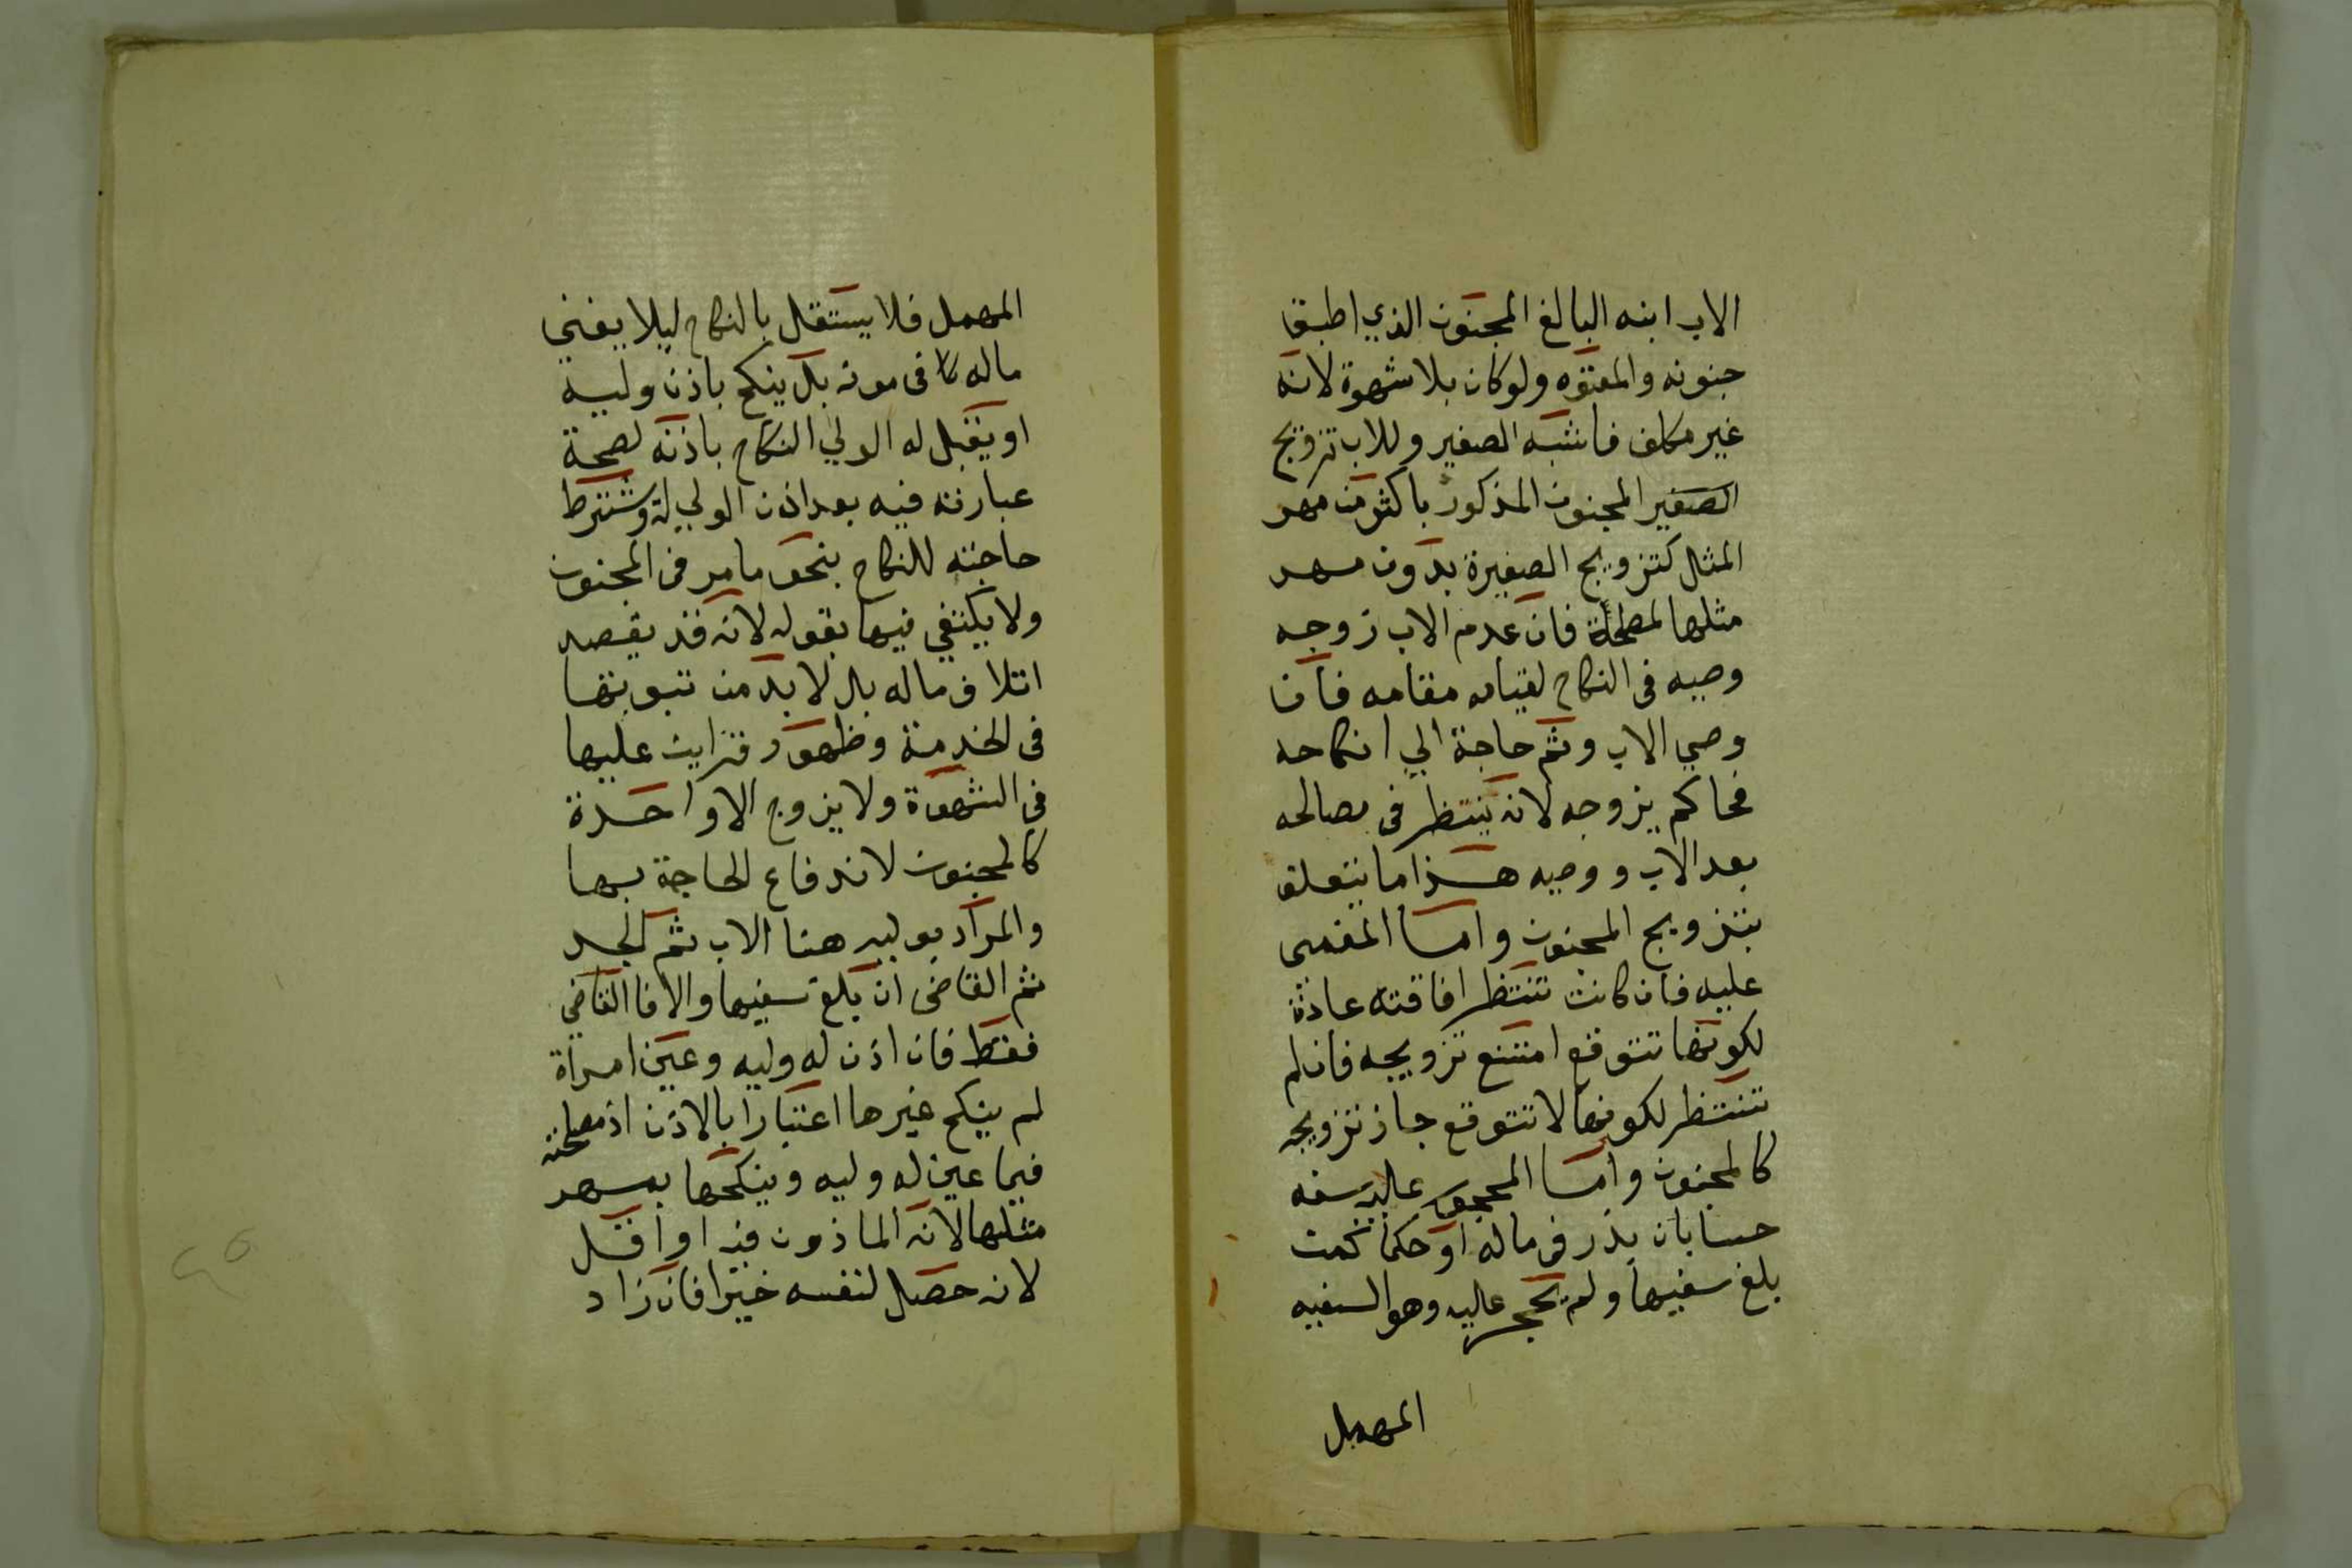 الاب ابنه البالغ المجنون الذي اطبق
جنونه والمعتوه ولو كان بلا شهوة لانه
غير مكلف فاشبه الصغير وللاب تزويج
الصغير المجنون المذكور باكثر من مهر
المثل كتزويج الصغيرة بدون مهر
مثلها لمصلحة فان عدم الاب زوجه
وصيه فى النكاح لقيامه مقامه فان
وصي الاب وثم حاجة الي انكاحه
فحاكم يزوجه لانه ينتظر فى مصالحه
بعد الاب ووصيه هذا ما يتعلق
بتزويج المجنون واما المغمى
عليه فان كانت تنتظر افاقته عادة
لكونها تتوقع امتنع تزويجه فان لم
تنتظر لكونها لا تتوقع جاز تزويجه
كالمجنون واما المحجور عليه بسفه
حسا بان بذر فى ماله او حكما كمن
بلغ سفيها ولم يحجر عليه وهو السفيه
المهمل
المهمل فلا يستقل بالنكاح ليلا يفني
ماله فى مونه بل ينكح باذن وليه
او يقبل له الولي النكاح باذنه لصحة
عبارته فيه بعد اذن الولي له ويشترط
حاجته للنكاح بنحو ما مر فى المجنون
ولا يكتفي فيها بقوله لانه قد يقصد
اتلاف ماله بل لا بد من ثبوتها
فى الخدمة وظهور قراين عليها
في الشهوة ولا يزوج الا واحدة
كالمجنون لاندفاع الحاجة بها
والمراد بوليه هنا الاب ثم الجد
ثم القاضى ان بلغ سفيها والا فالقاضي
فقط فان اذن له وليه وعين امراة
لم ينكح غيرها اعتبارا بالاذن اذ مصلحته
فيما عين له وليه وينكحها بمهر
مثلها لانه الماذون فيه او اقل
لانه حصل لنفسه خيرا فان زاد